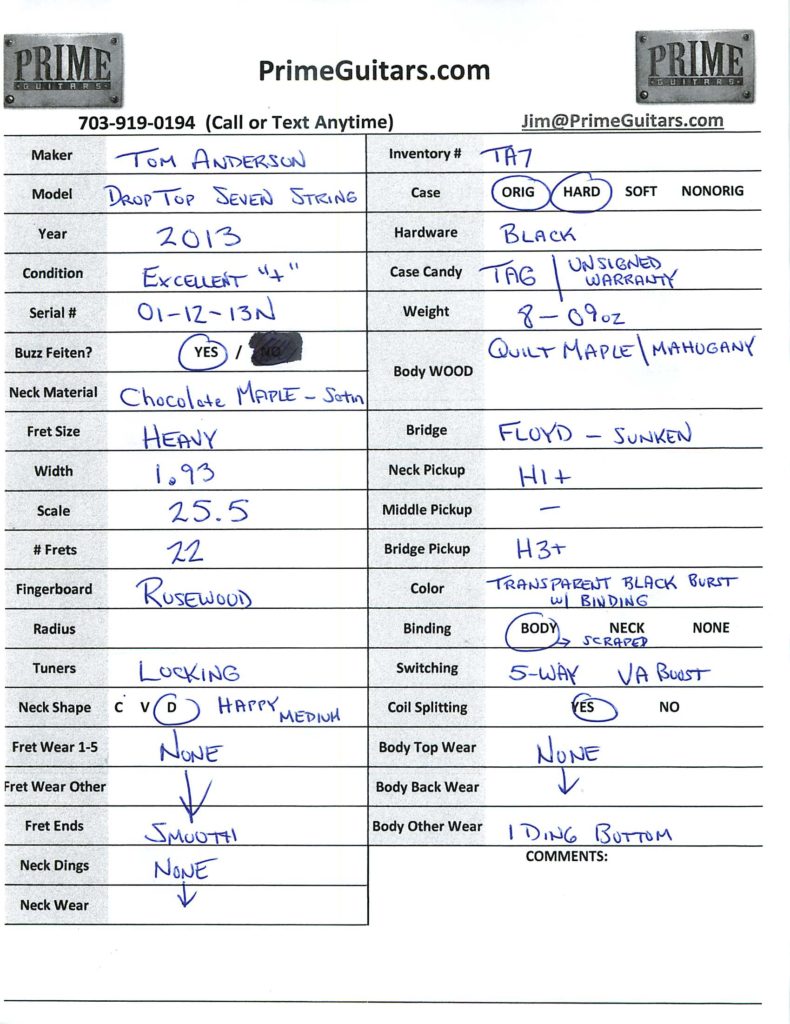 PRIME
GUITARS
PrimeGuitars.com
PRIME
GUITARS
703-919-0194 (Call or Text Anytime)
Jim@PrimeGuitars.com
Maker TOM ANDERSON
Model DROP TOP SEVEN STRING
Year 2013
Condition EXCELLENT "+"
Serial # 01-12-13N
Buzz Feiten? YES / NO
Neck Material Chocolate MAPLE - Satin
Fret Size HEAVY
Width 1.93
Scale 25.5
# Frets 22
Fingerboard ROSEWOOD
Radius
Tuners LOCKING
Neck Shape C V D HAPPY MEDIUM
Fret Wear 1-5 NONE
Fret Wear Other
Fret Ends SMOOTH
Neck Dings NONE
Neck Wear
Inventory # TA7
Case ORIG HARD SOFT NONORIG
Hardware BLACK
Case Candy TAG | UNSIGNED WARRANTY
Weight 8 - 09oz
Body WOOD QUILT MAPLE / MAHOGANY
Bridge FLOYD - SUNKEN
Neck Pickup H1+
Middle Pickup -
Bridge Pickup H3+
Color TRANSPARENT BLACK BURST
W/ BINDING
Binding BODY NECK NONE
SCRAPED
Switching 5-WAY VA BOOST
Coil Splitting YES NO
Body Top Wear NONE
Body Back Wear
Body Other Wear 1 DING BOTTOM
COMMENTS: